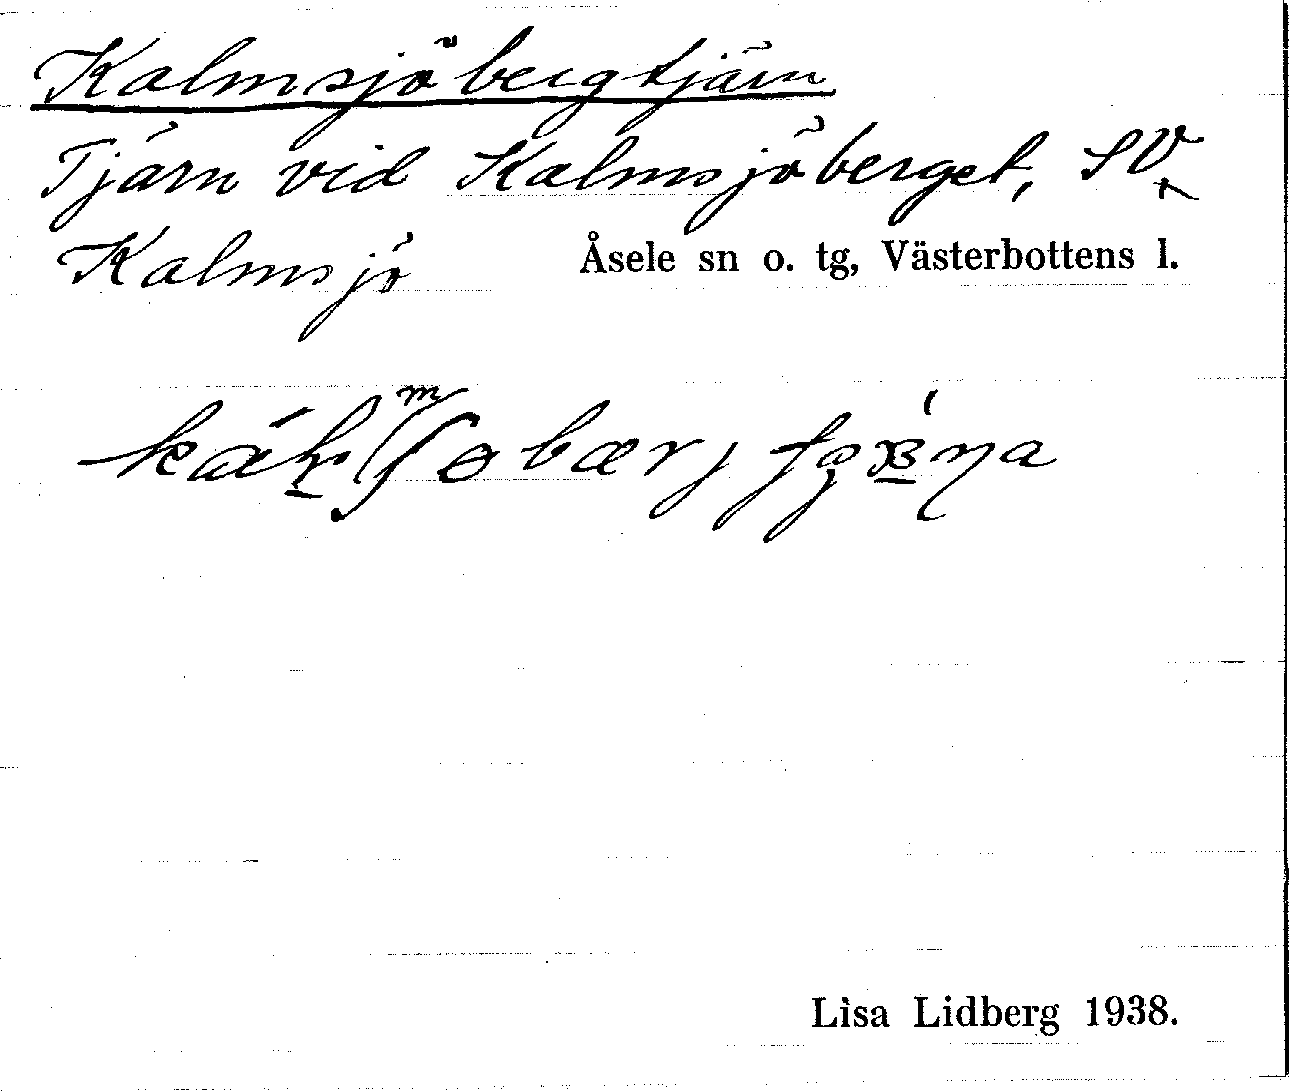 Kalmsjöbergtjärn
Tjärn vid Kalmsjöberget, SV
Kalmsjö Åsele sn o. tg, Västerbottens l.
Lisa Lidberg 1938.